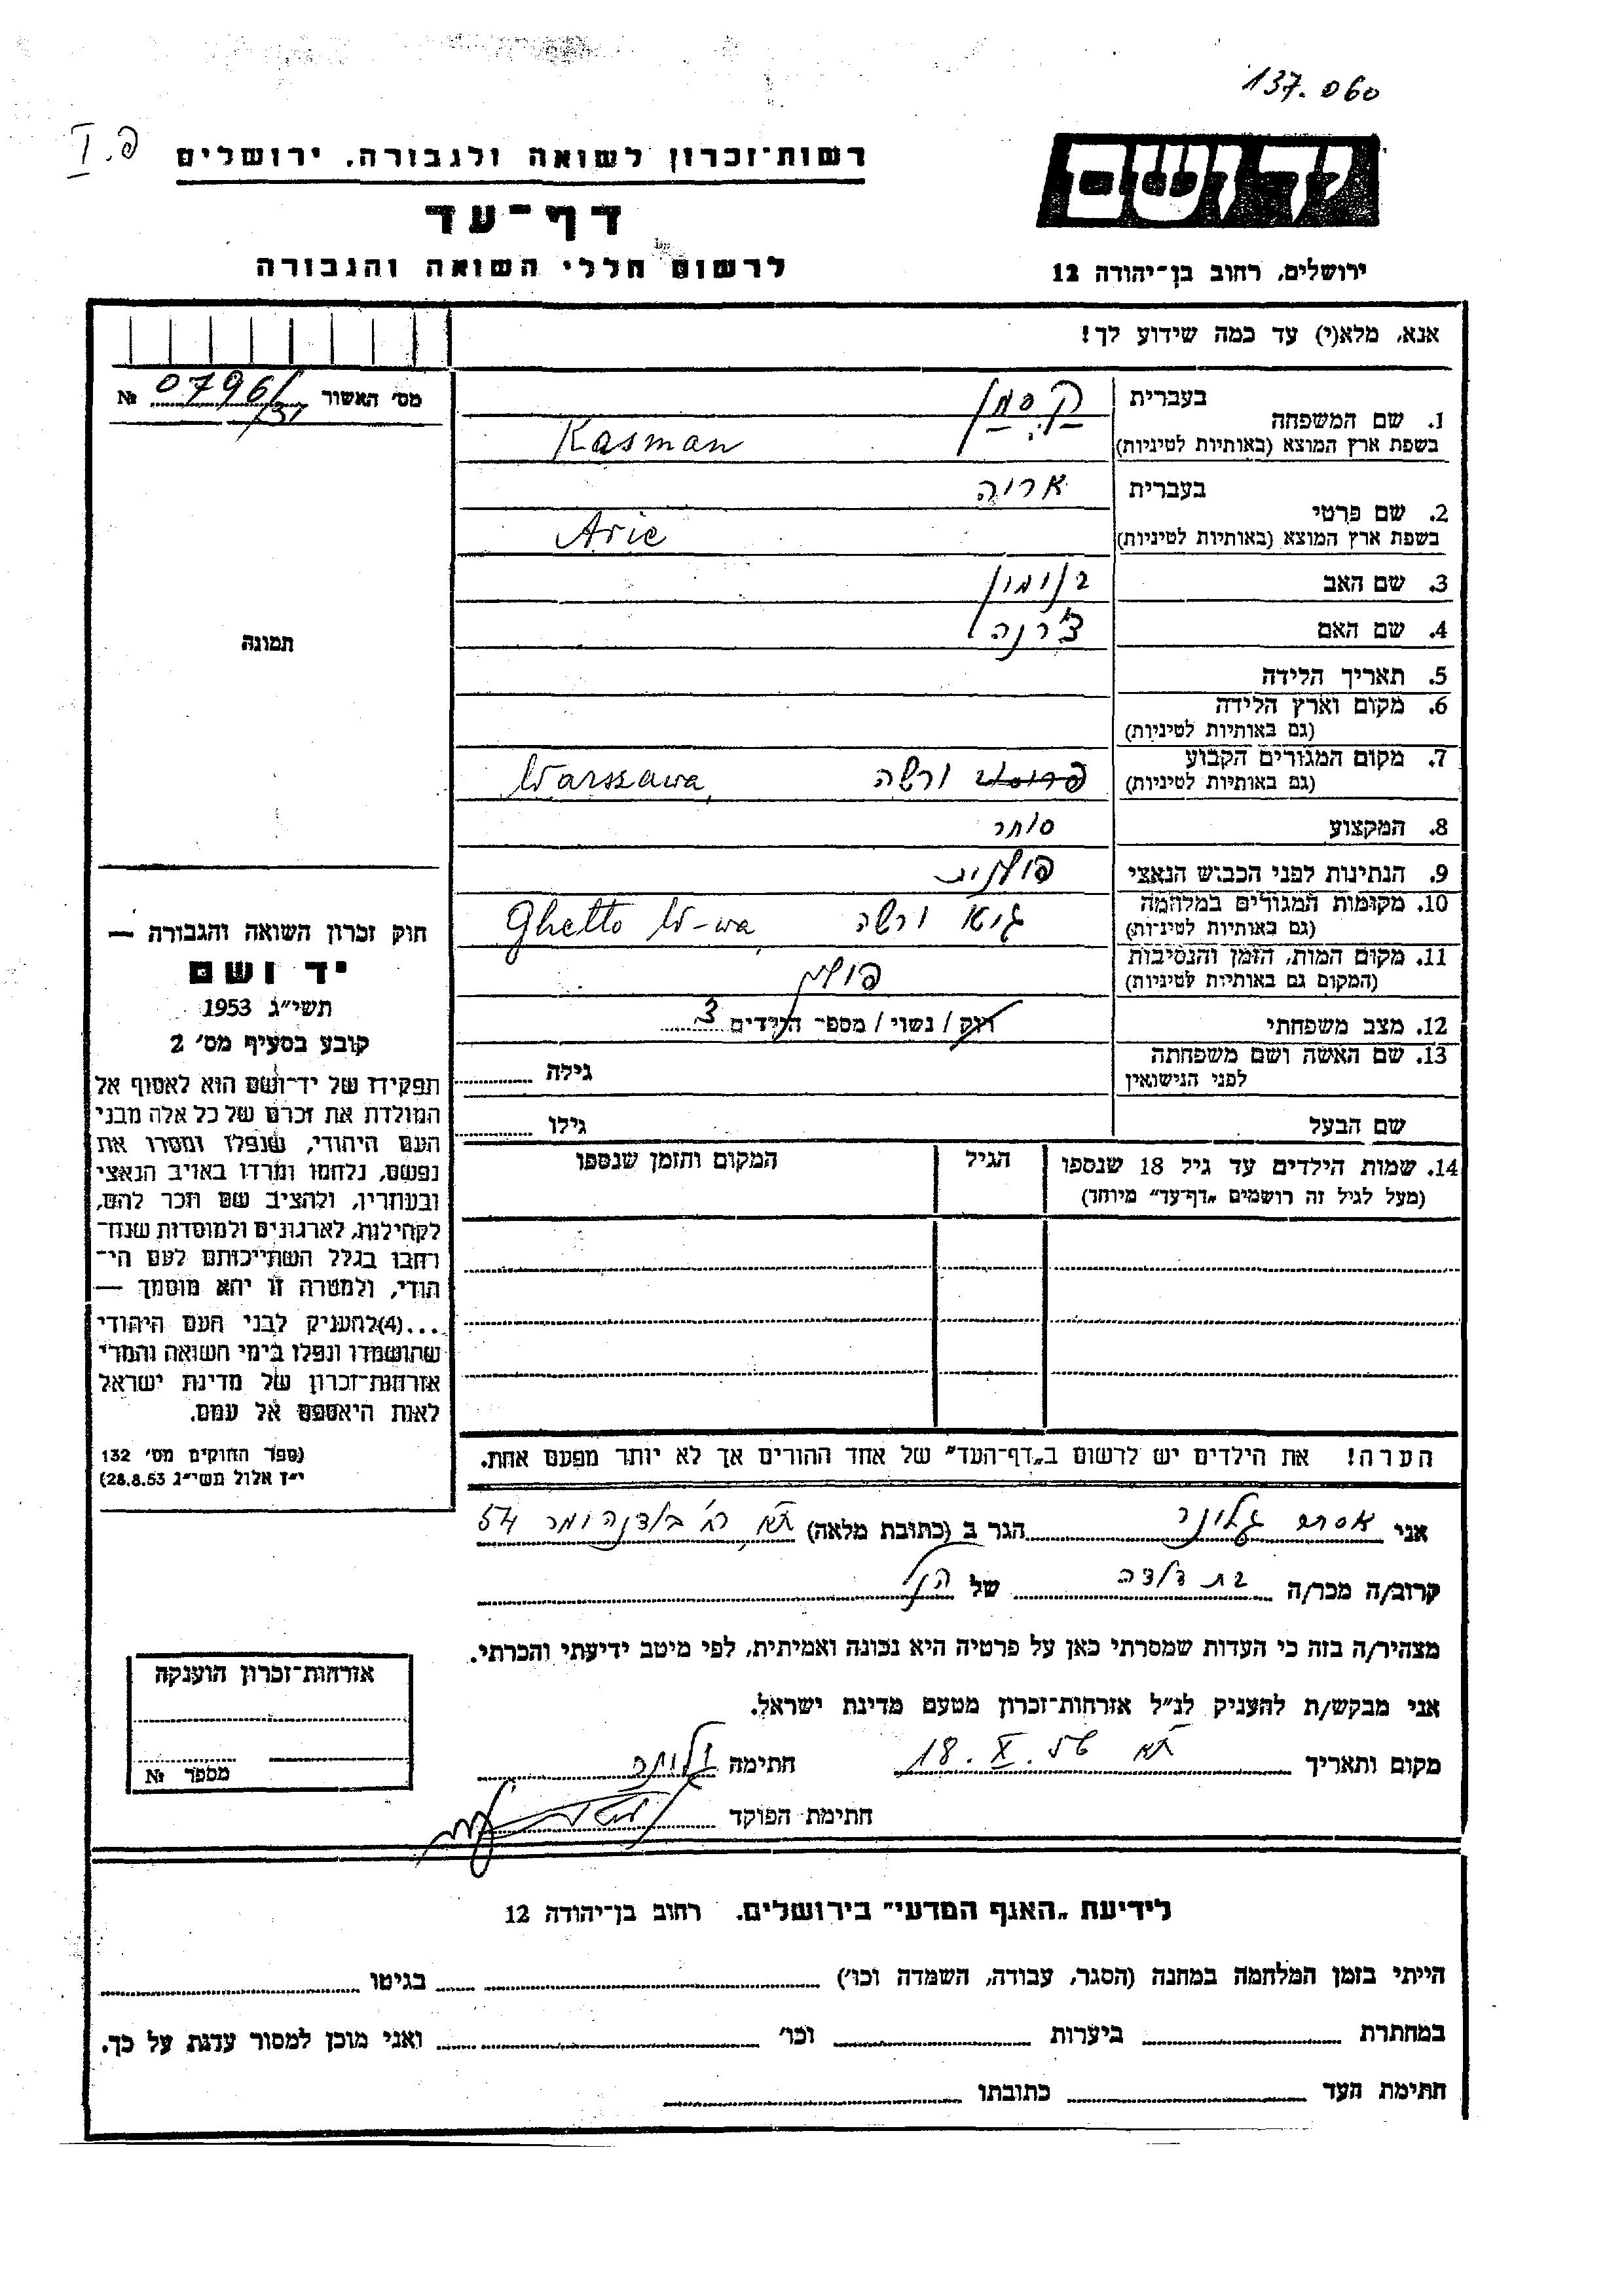 137.060
פ. I
רשות־זכרון לשואה ולגבורה, ירושלים
יד ושם
דף־עד
לרשום חללי השואה והגבורה
ירושלים, רחוב בן־יהודה 12
אנא, מלא(י) עד כמה שידוע לך!
מס׳ האשור 0796/ №
131
בעברית קסמן
1. שם המשפחה
בשפת ארץ המוצא (באותיות לטיניות) Kasman
בעברית אריה
2. שם פרטי
בשפת ארץ המוצא (באותיות לטיניות) Arie
3. שם האב בנימין
4. שם האם
תמונה
5. תאריך הלידה
6. מקום וארץ הלידה
(גם באותיות לטיניות)
7. מקום המגורים הקבוע ורשה Warszawa
(גם באותיות לטיניות)
8. המקצוע סוחר
9. הנתינות לפני הכבוש הנאצי פולנית
10. מקומות המגורים במלחמה גיטו ורשה Ghetto W-wa
(גם באותיות לטיניות)
11. מקום המות, הזמן והנסיבות פולין
(המקום גם באותיות לטיניות)
12. מצב משפחתי רוק / נשוי / מספר הילדים 3
13. שם האשה ושם משפחתה גילה
לפני הנישואין
שם הבעל גילו
14. שמות הילדים עד גיל 18 שנספו הגיל המקום והזמן שנספו
(מעל לגיל זה רושמים „דף־עד״ מיוחד)
חוק זכרון השואה והגבורה —
יד ושם
תשי״ג 1953
קובע בסעיף מס׳ 2
תפקידו של יד־ושם הוא לאסוף אל
המולדת את זכרם של כל אלה מבני
העם היהודי, שנפלו ומסרו את
נפשם, נלחמו ומרדו באויב הנאצי
ובעוזריו, ולהציב שם וזכר להם,
לקהילות, לארגונים ולמוסדות שנח־
רבו בגלל השתייכותם לעם הי־
הודי, ולמטרה זו יהא מוסמך —
...(4)להעניק לבני העם היהודי
שהושמדו ונפלו בימי השואה והמרי
אזרחות־זכרון של מדינת ישראל
לאות היאספם אל עמם.
(ספר החוקים מס׳ 132
י״ז אלול תשי״ג 28.8.53)
הערה! את הילדים יש לרשום ב„דף־העד״ של אחד ההורים אך לא יותר מפעם אחת.
אני אסתר הגר ב (כתובת מלאה) 54
קרוב/ה מכר/ה בת דודה של הנ״ל
מצהיר/ה בזה כי העדות שמסרתי כאן על פרטיה היא נכונה ואמיתית, לפי מיטב ידיעתי והכרתי.
אני מבקש/ת להעניק לנ״ל אזרחות־זכרון מטעם מדינת ישראל.
מקום ותאריך 18. X. 56 חתימה
חתימת הפוקד
אזרחות־זכרון הוענקה
מספר №
לידיעת „האגף המדעי״ בירושלים. רחוב בן־יהודה 12
הייתי בזמן המלחמה במחנה (הסגר, עבודה, השמדה וכו׳) בגיטו
במחתרת ביערות וכו׳ ואני מוכן למסור עדות על כך.
חתימת העד כתובתו